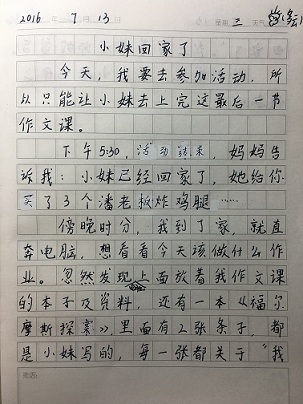 2016 年 7 月 13 日 星期 三 天气
小妹回家了
今天,我要去参加活动,所
以只能让小妹去上完这最后一节
作文课。
下午5:30,活动结束,妈妈告
诉我:小妹已经回家了,她给你
买了3个潘老板炸鸡腿……
傍晚时分,我到了家,就直
奔电脑,想看看今天该做什么作
业。忽然发现上面放着我作文课
的本子及资料,还有一本《福尔
摩斯探案》,里面有2张条子,都
是小妹写的,每一张都关于“我